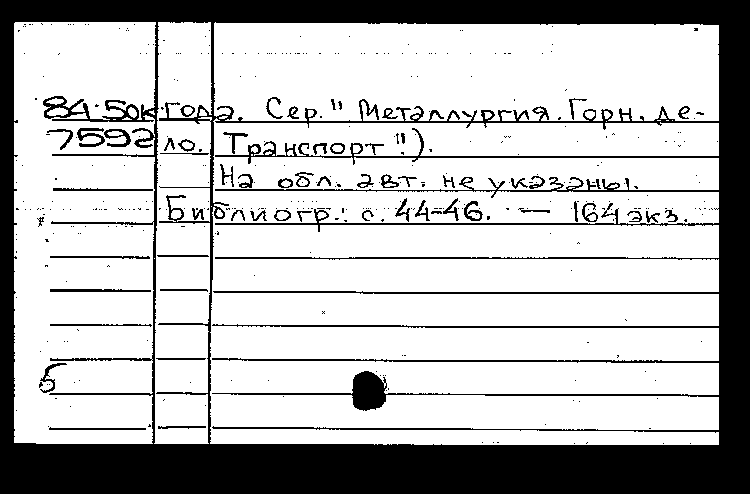 84-50к года. Сер. "Металлургия. Горн. де-
7592 ло. Транспорт").
На обл. авт. не указаны.
Библиогр.: с. 44-46. — 164 экз.
5